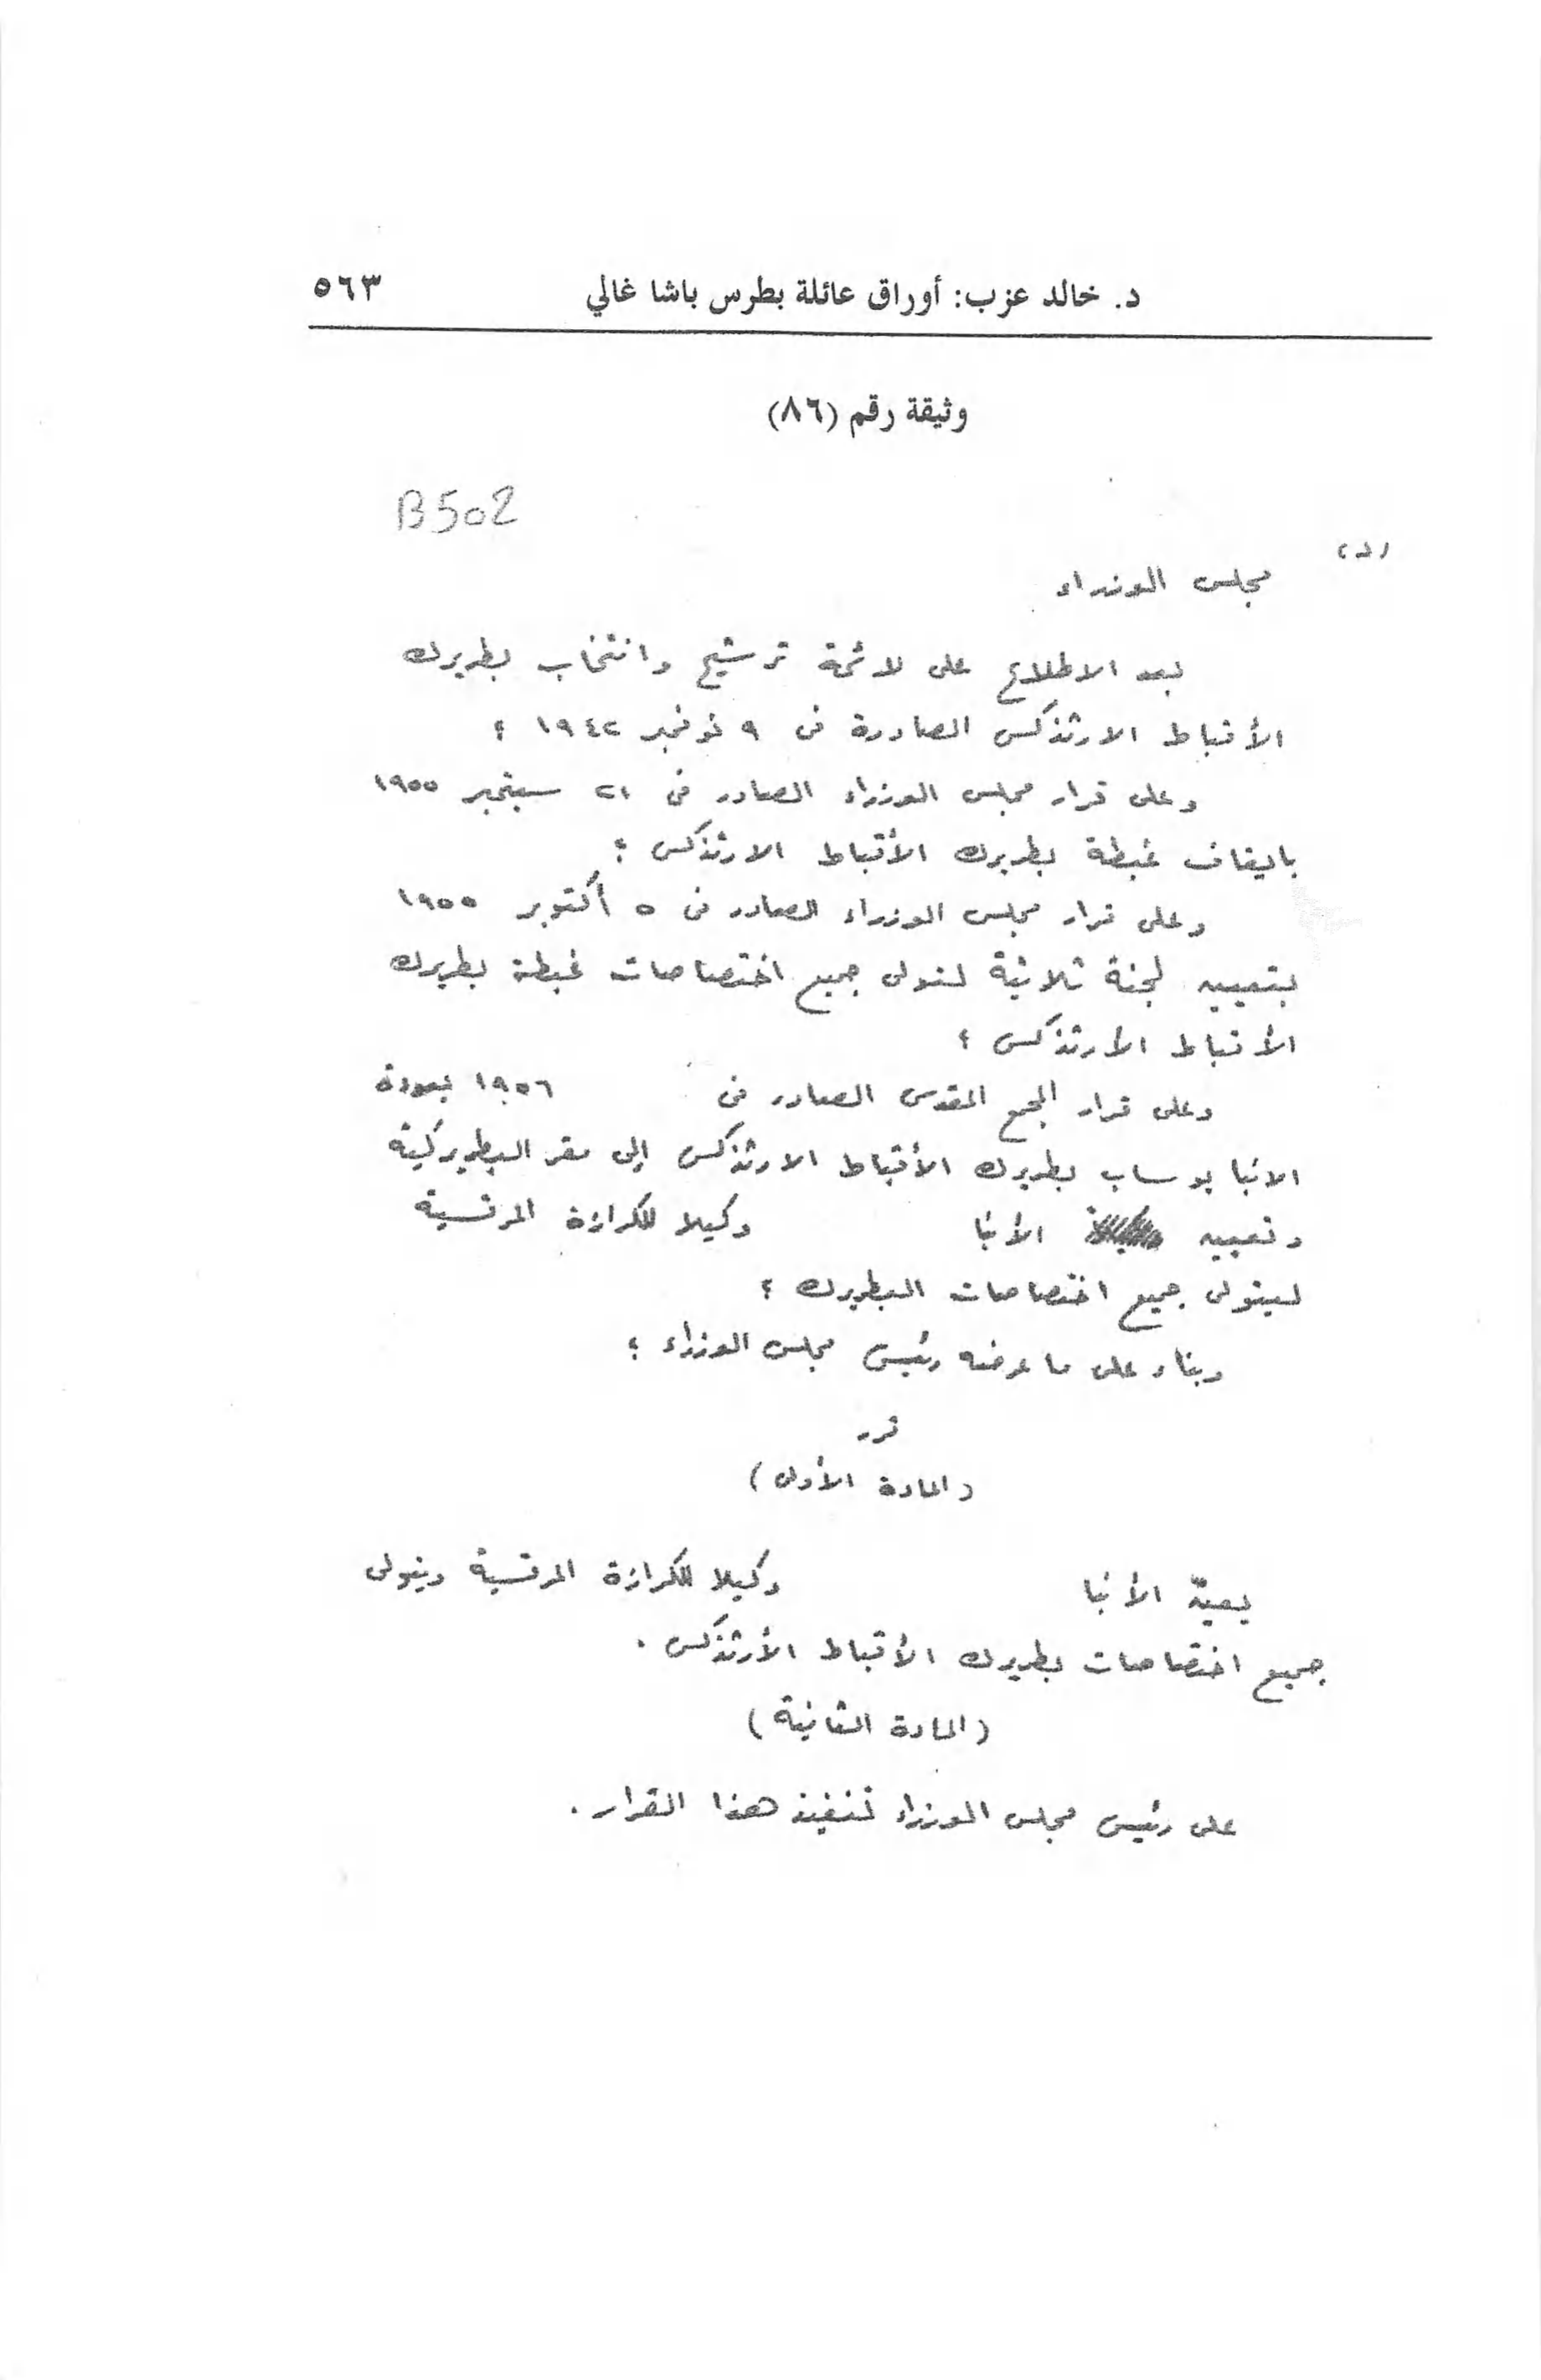 د. خالد عزب: أوراق عائلة بطرس باشا غالي ٥٦٣
وثيقة رقم (٨٦)
B502
(د)
مجلس الوزراء
بعد الاطلاع على لائحة ترشيح وانتخاب بطريرك
الأقباط الارثذكس الصادرة فى ٩ نوفمبر ١٩٤٢ ؛
وعلى قرار مجلس الوزراء الصادر فى ٢١ سبتمبر ١٩٥٥
بايقاف غبطة بطريرك الأقباط الارثذكس ؛
وعلى قرار مجلس الوزراء الصادر فى ٥ أكتوبر ١٩٥٥
بتعيين لجنة ثلاثية لتولى جميع اختصاصات غبطة بطريرك
الأقباط الأرثذكس ؛
وعلى قرار المجمع المقدس الصادر فى ١٩٥٦ بعودة
الانبا يوساب بطريرك الأقباط الارثذكس إلى مقر البطريركية
وتعيين الأنبا وكيلا للكرازة المرقسية
ليتولى جميع اختصاصات البطريرك ؛
وبناء على ما عرضه رئيس مجلس الوزراء ؛
قرر
(المادة الأولى)
يعيّن الأنبا وكيلا للكرازة المرقسية ويتولى
جميع اختصاصات بطريرك الأقباط الأرثذكس .
(المادة الثانية)
على رئيس مجلس الوزراء تنفيذ هذا القرار .